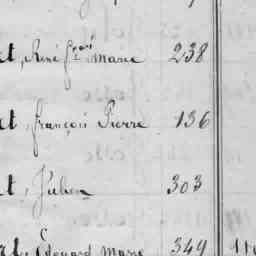 et, René fçois Marie 238
et, françois Pierre 136
t, Julien 303
Edouard Marie 349